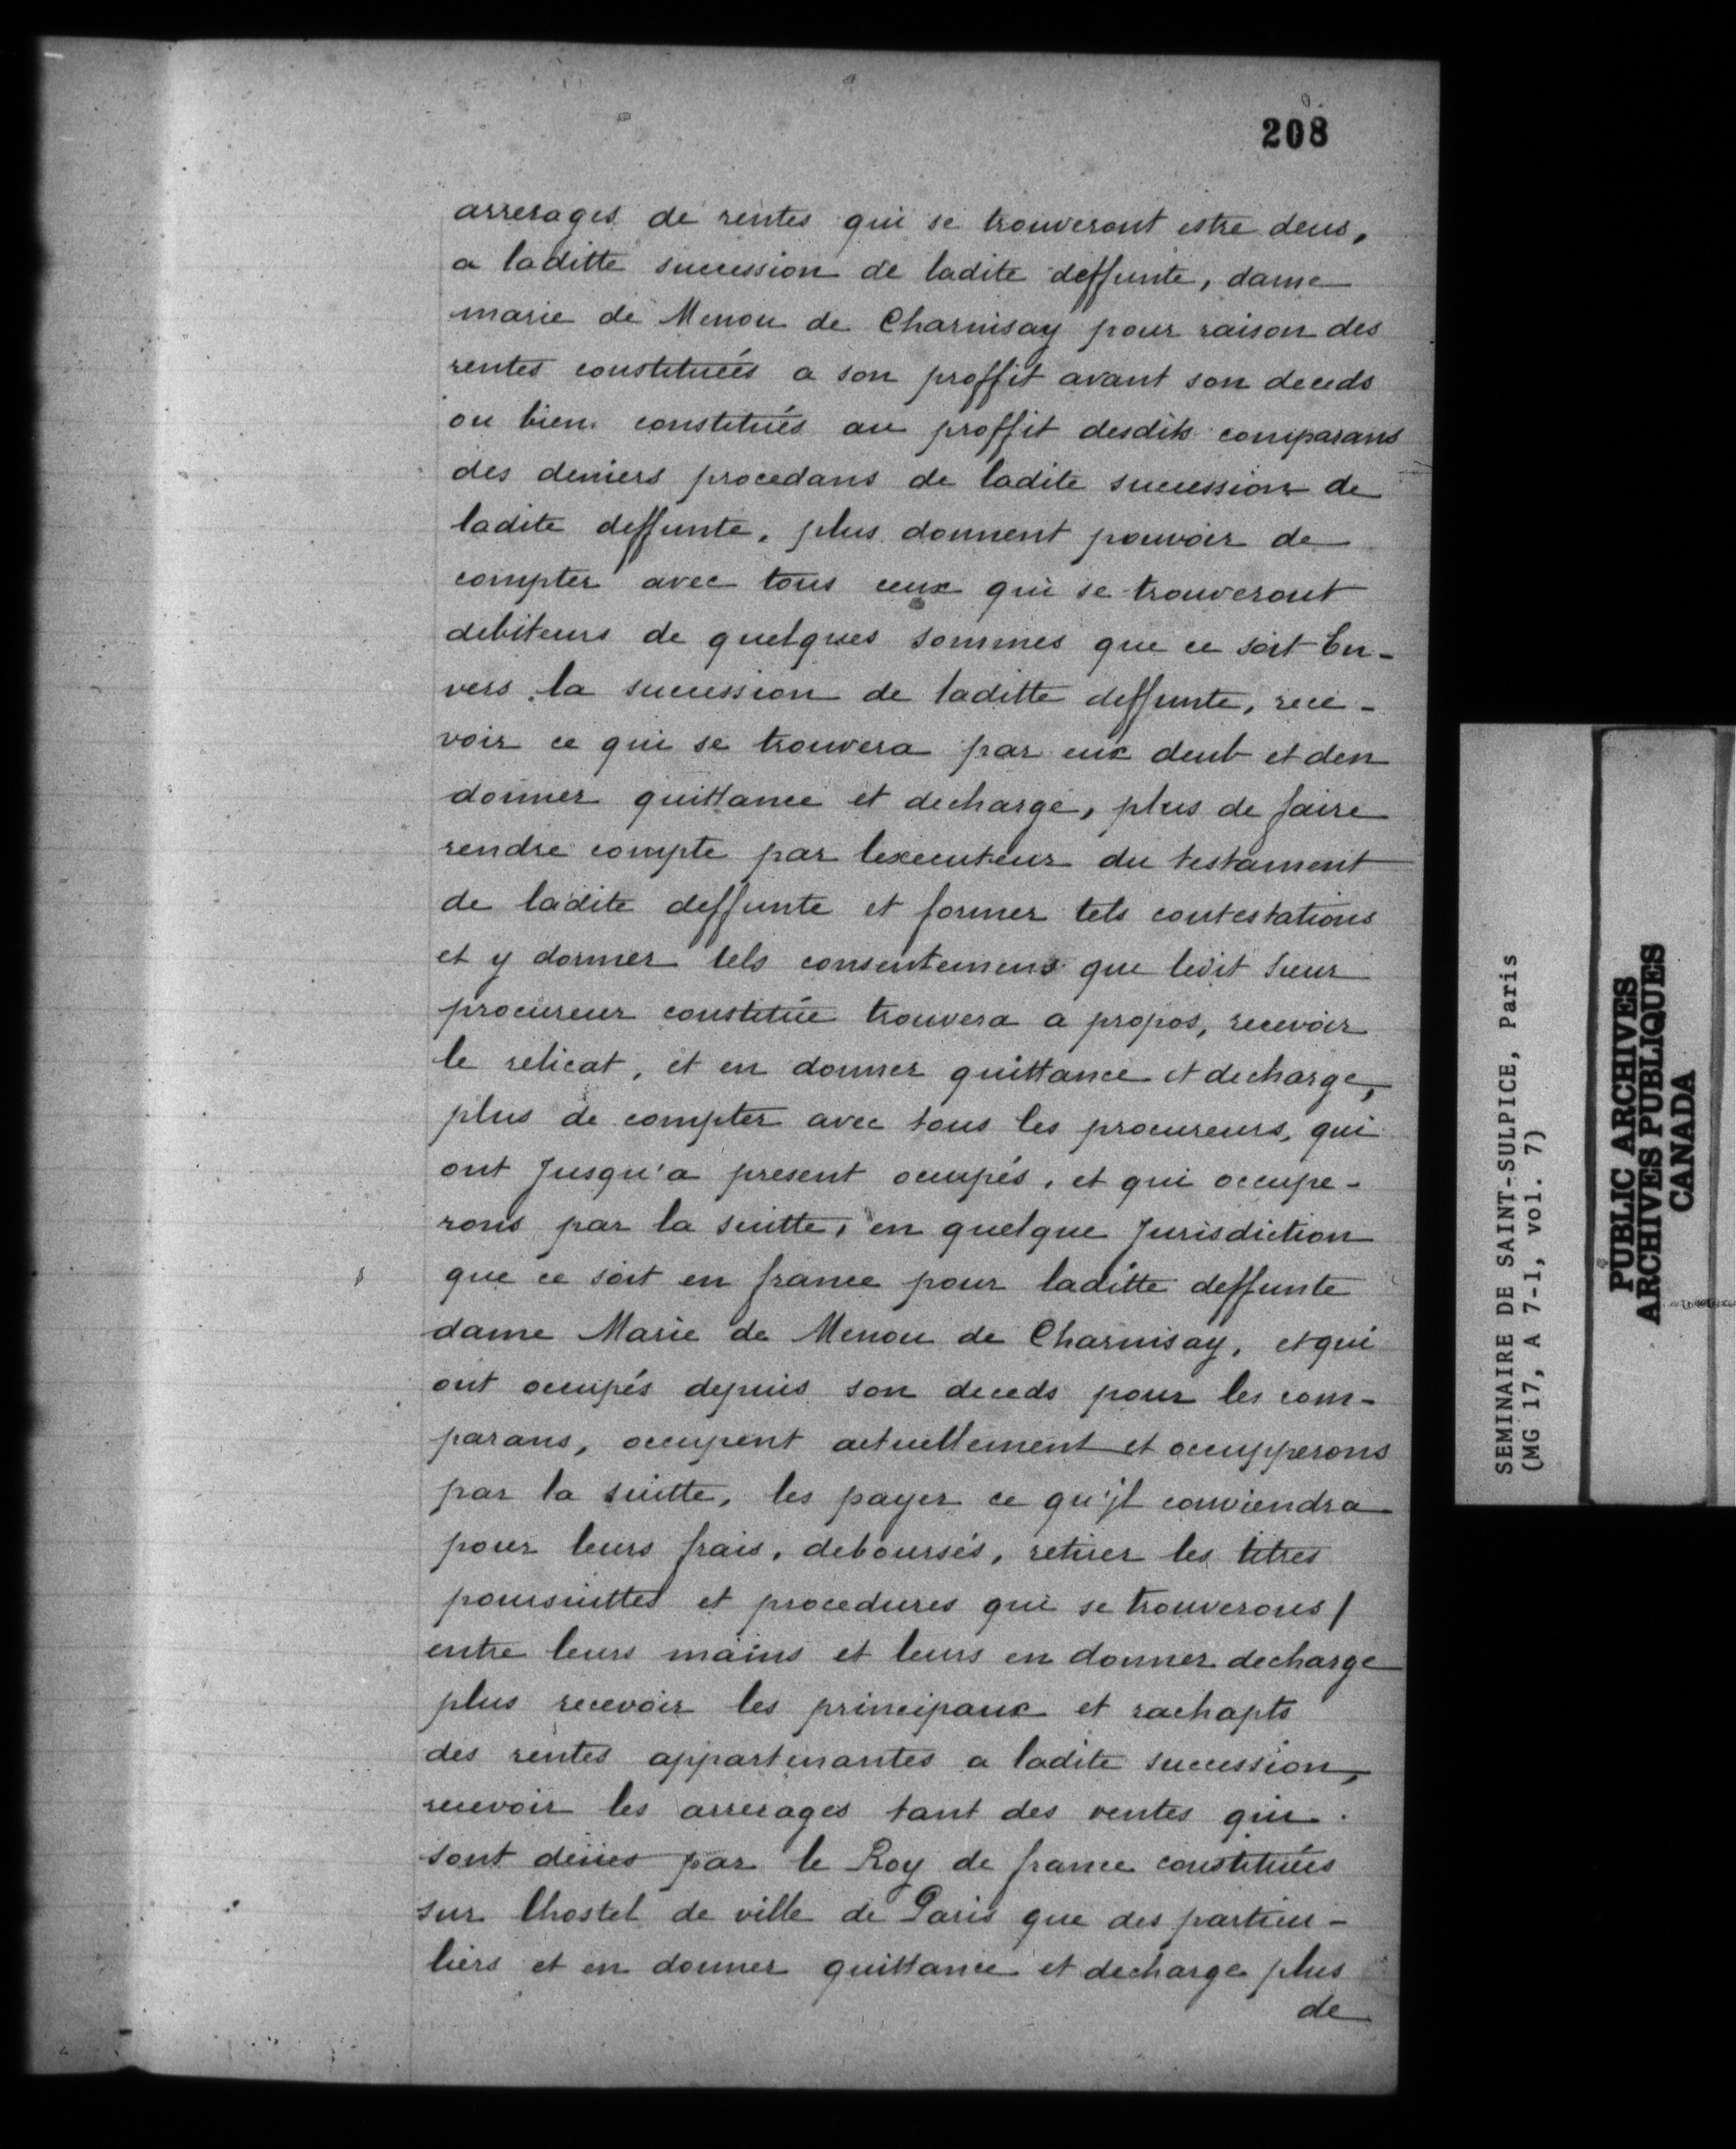 208
arrerages de rentes qui se trouveront estre deus,
a laditte succession de ladite deffunte, dame
marie de Menou de Charnisay pour raison des
rentes constituées a son proffit avant son deceds
ou bien constitués au proffit desdits comparans
des deniers procedans de ladite succession de
ladite deffunte, plus donnent pouvoir de
compter avec tous ceux qui se trouveront
debiteurs de quelques sommes que ce soit En-
vers la succession de laditte deffunte, rece-
voir ce qui se trouvera par eux deub et den
donner quittance et decharge, plus de faire
rendre compte par lexecuteur du testament
de ladite deffunte et former tels contestations
et y donner tels consentemens que ledit sieur
procureur constitüé trouvera a propos, recevoir
le relicat, et en donner quittance et decharge,
plus de compter avec tous les procureurs, qui
ont Jusqu'a present occupés, et qui occupe-
rons par la suitte, en quelque Jurisdiction
que ce soit en france pour laditte deffunte
dame Marie de Menou de Charnisay, et qui
ont occupés depuis son deceds pour les com-
parans, occupent actuellement et occupperons
par la suitte, les payer ce qu'jl conviendra
pour leurs frais, deboursés, retirer les titres
poursuittes et procedures qui se trouverons/
entre leurs mains et leurs en donner decharge
plus recevoir les principaux et rachapts
des rentes appartenantes a ladite succession,
recevoir les arrerages tant des rentes qui
sont deües par le Roy de france constituées
sur lhostel de ville de Paris que des particu-
liers et en donner quittance et decharge plus
de
SEMINAIRE DE SAINT-SULPICE, Paris
(MG 17, A 7-1, vol. 7)
PUBLIC ARCHIVES
ARCHIVES PUBLIQUES
CANADA